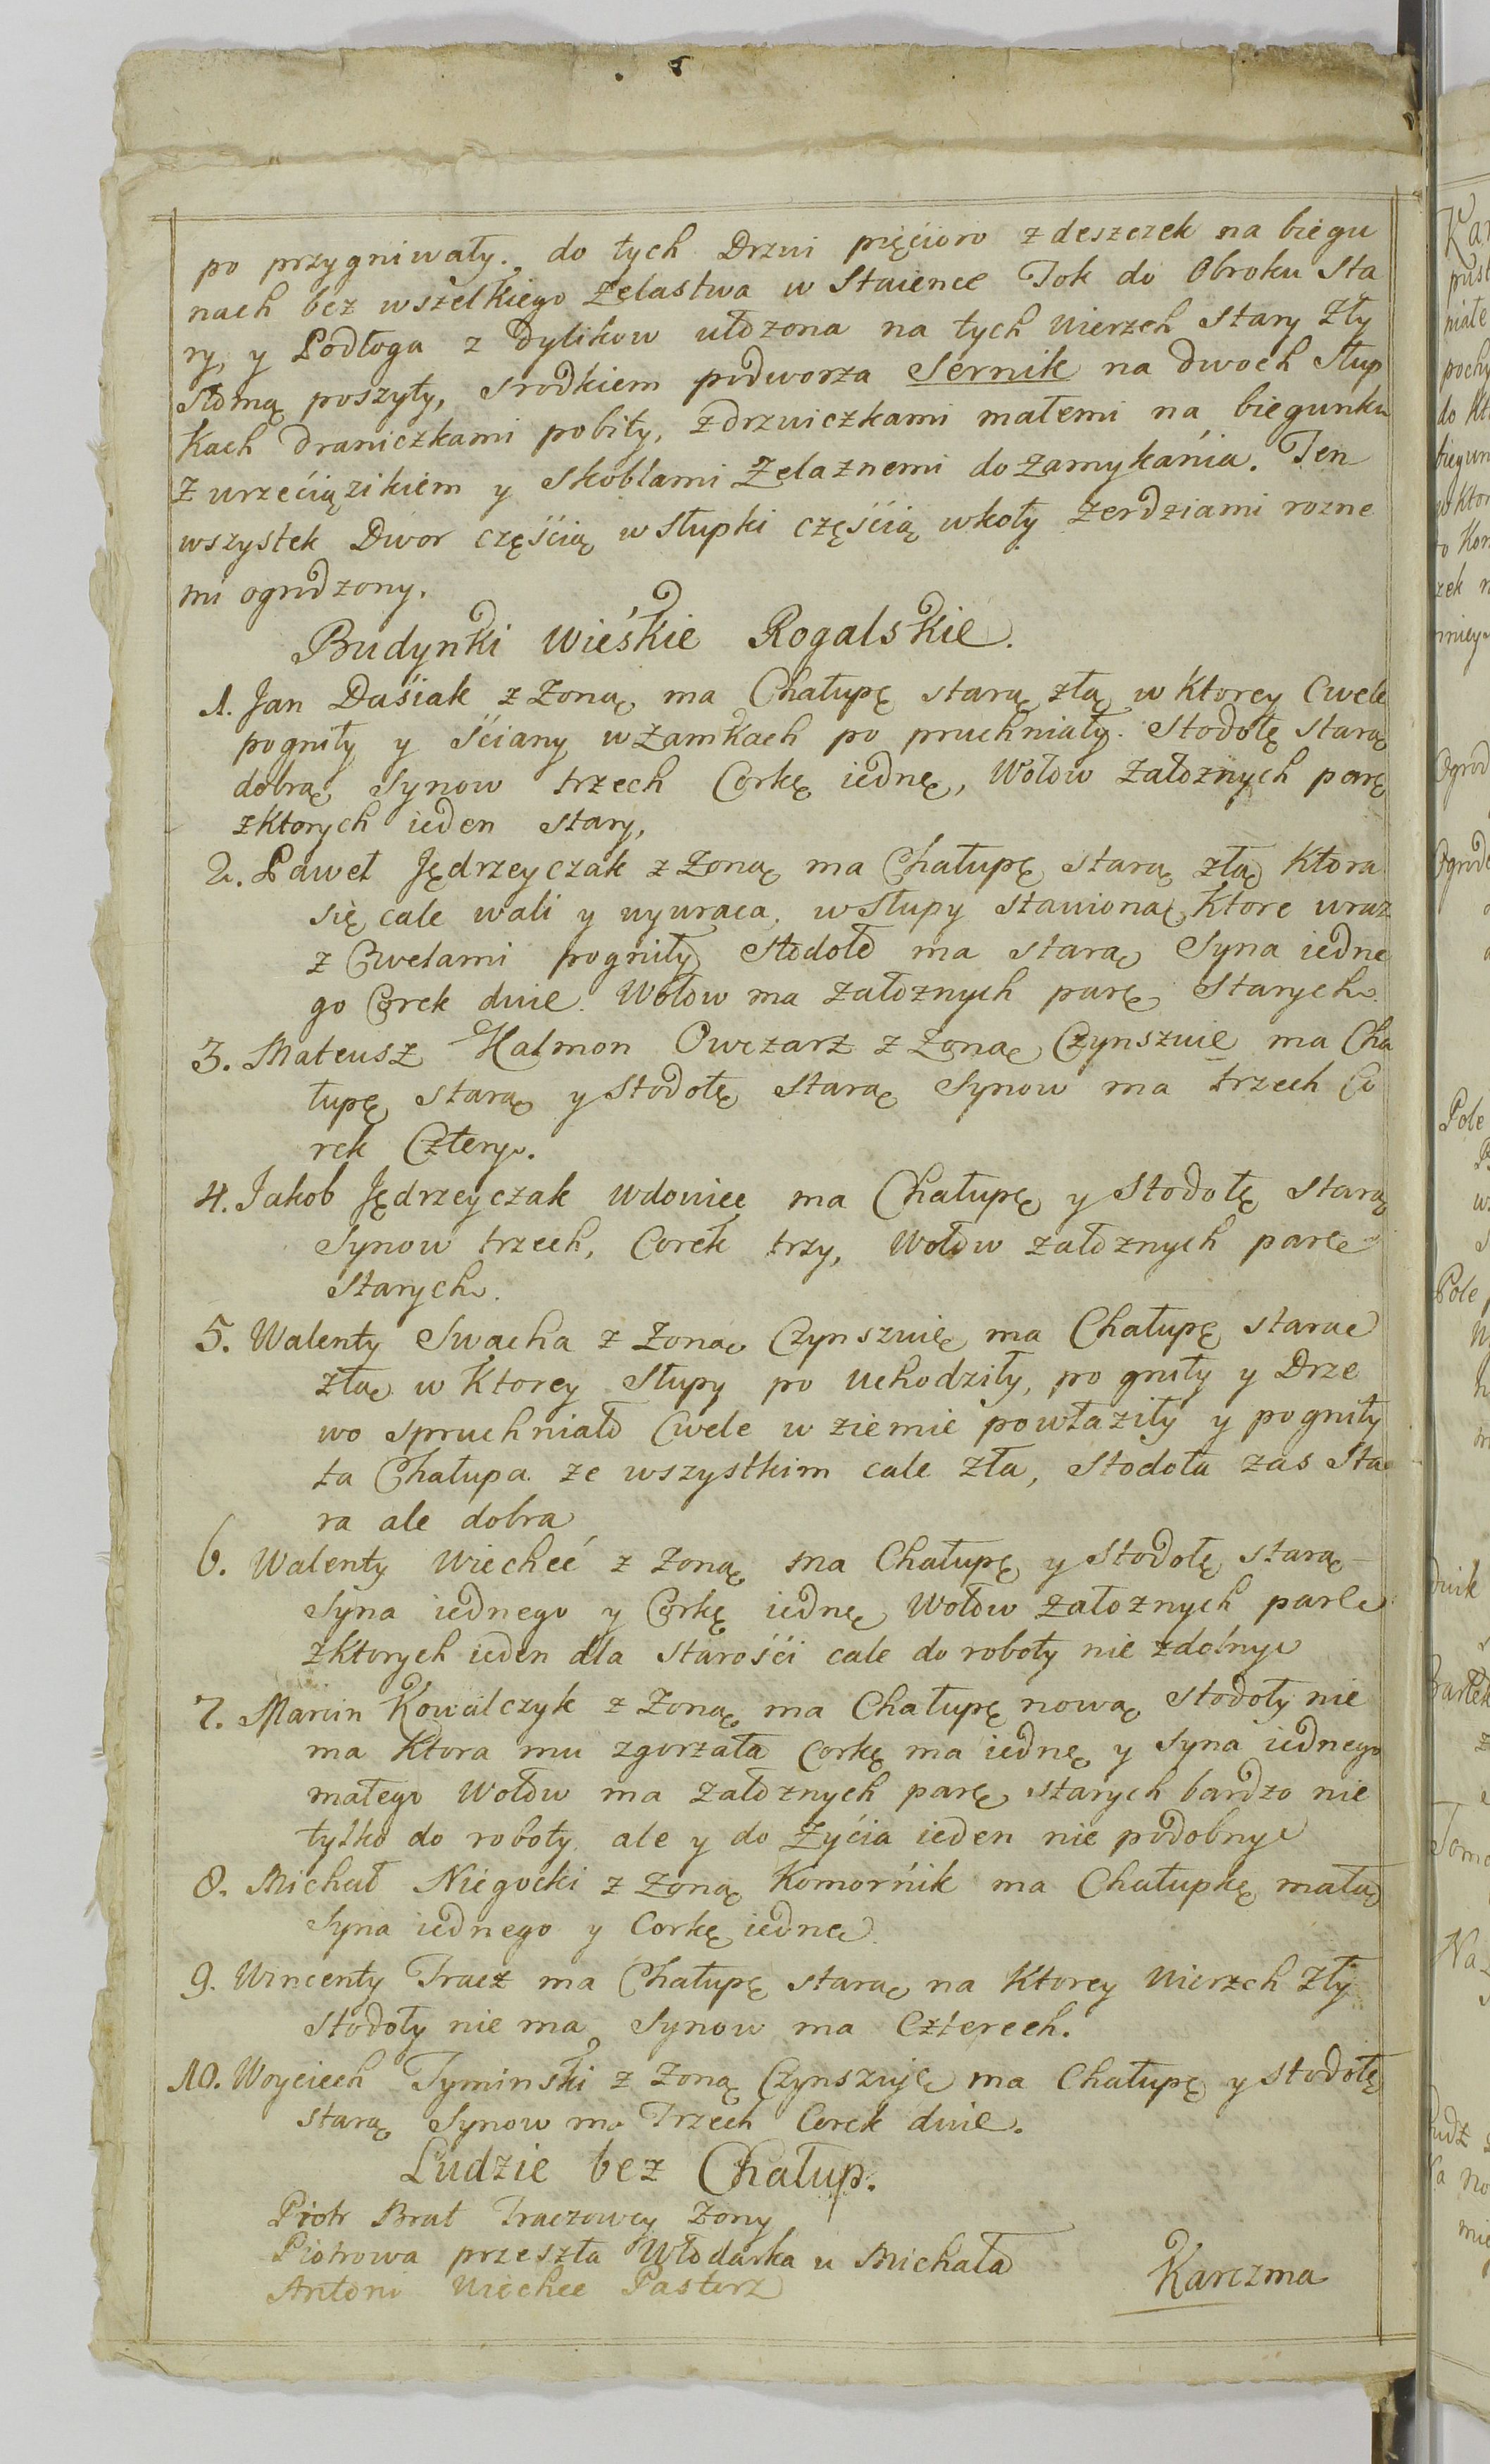 po przygniwały. do tych Drzwi pięcioro z deszczek na biegu
nach bez wszelkiego Zelastwa w Staience Tok do Obroku Sta
ry, y Podłoga z Dylikow ułozona na tych wierzch Stary Zły
Słomą poszyty, srodkiem podworza Sernik na dwoch Słup
kach Draniczkami pobity, z drzwiczkami małemi na biegunku
z wrzeciązikiem y Skoblami Zelaznemi do Zamykania. Ten
wszystek Dwor częścią w Słupki częścią w koły Zerdziami rozne
mi ogrodzony.
Budynki wieśkie Rogalskie.
1. Jan Daśiak z Zoną ma Chałupę starą złą w Ktorey Cwele
pogniły y ściany w Zamkach po pruchniały. Stodołę Starą
dobrą Synow trzech Corkę iednę, Wołow Załoznych parę
z Ktorych ieden Stary,
2. Paweł Jędrzeyczak z Zoną ma Chałupę Starą złą Ktora
się cale wali y wywraca, w Słupy Stawioną Ktore wraz
z Cwelami pogniły Stodołe ma Starą Syna iedne
go Corek dwie. Wołow ma Załoznych parę Starych.
3. Mateusz Halmon Owczarz z Zoną Czynszuie ma Cha
łupę Starą y Stodołę Starą Synow ma trzech Co
rek Cztery.
4. Jakob Jędrzeyczak Wdowiec ma Chałupę y Stodołę Starą
Synow trzech, Corek trzy, Wołow załoznych parę
Starych.
5. Walenty Swacha z Zoną Czynszuie ma Chałupę starą
złą w Ktorey Słupy po uchodziły, po gniły y Drze
wo spruchniało Cwele w ziemie powłaziły y pogniły
ta Chałupa ze wszystkim cale zła, Stodoła zas Sta
ra ale dobra
6. Walenty Wiecheć z Zoną ma Chałupę y Stodołę starą
Syna iednego y Corkę iednę Wołow Załoznych parę
z Ktorych ieden dla Starości cale do roboty nie zdolny
7. Marcin Kowalczyk z Zoną ma Chałupę nową Stodoły nie
ma Ktora mu zgorzała Corkę ma iednę y Syna iednego
małego Wołow ma Załoznych parę starych bardzo nie
tylko do roboty ale y do Zycia ieden nie podobny
8. Michał Niegocki z Zoną Komornik ma Chałupkę małą
Syna iednego y Corkę iednę.
9. Wincenty Tracz ma Chałupę starą na Ktorey Wierzch Zły
Stodoły nie ma Synow ma Czterech.
10. Woyciech Tyminski z Zoną Czynszuię ma Chałupę y Stodołę
starą Synow ma Trzech Corek dwie.
Ludzie bez Chałup.
Piotr Brat Traczowey Zony
Piotrowa przeszła Włodarka u Michała
Antoni Wiechec Pasterz
Karczma